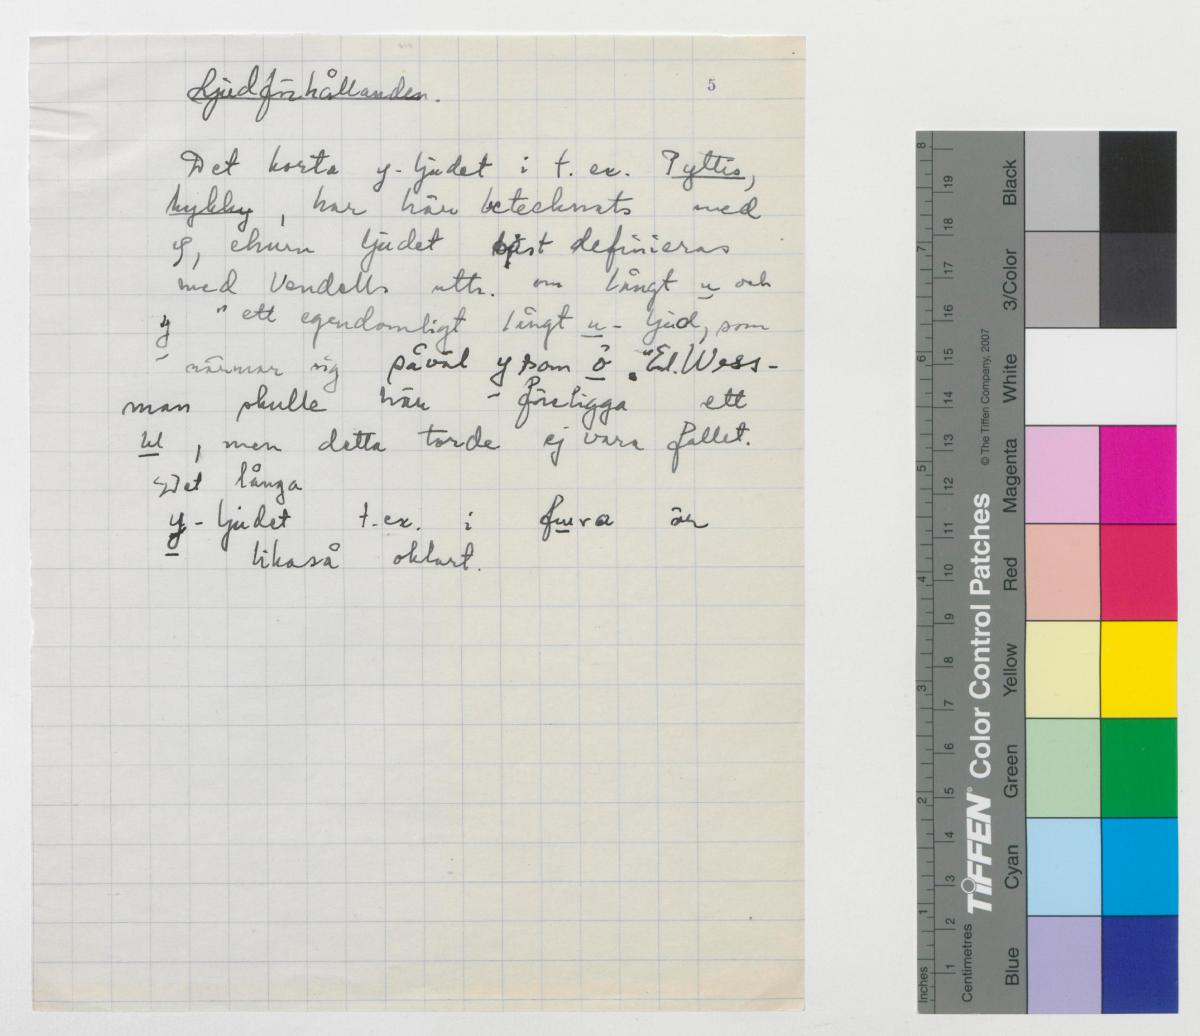 Ljudförhållanden.
5
Det korta y-ljudet i t. ex. Pyttis,
kykky, har här betecknats med
y, ehuru ljudet bäst definieras
med Vendells uttr. om långt u och
y "ett egendomligt långt u-ljud, som
närmar sig såväl y som ö". Enl. Wess-
man skulle här föreligga ett
ɯ, men detta torde ej vara fallet.
Det långa
y-ljudet t.ex. i fɯra är
likaså oklart.
Inches
Centimetres
TIFFEN® Color Control Patches
© The Tiffen Company, 2007
Blue
Cyan
Green
Yellow
Red
Magenta
White
3/Color
Black
1 2 3 4 5 6 7 8
1 2 3 4 5 6 7 8 9 10 11 12 13 14 15 16 17 18 19